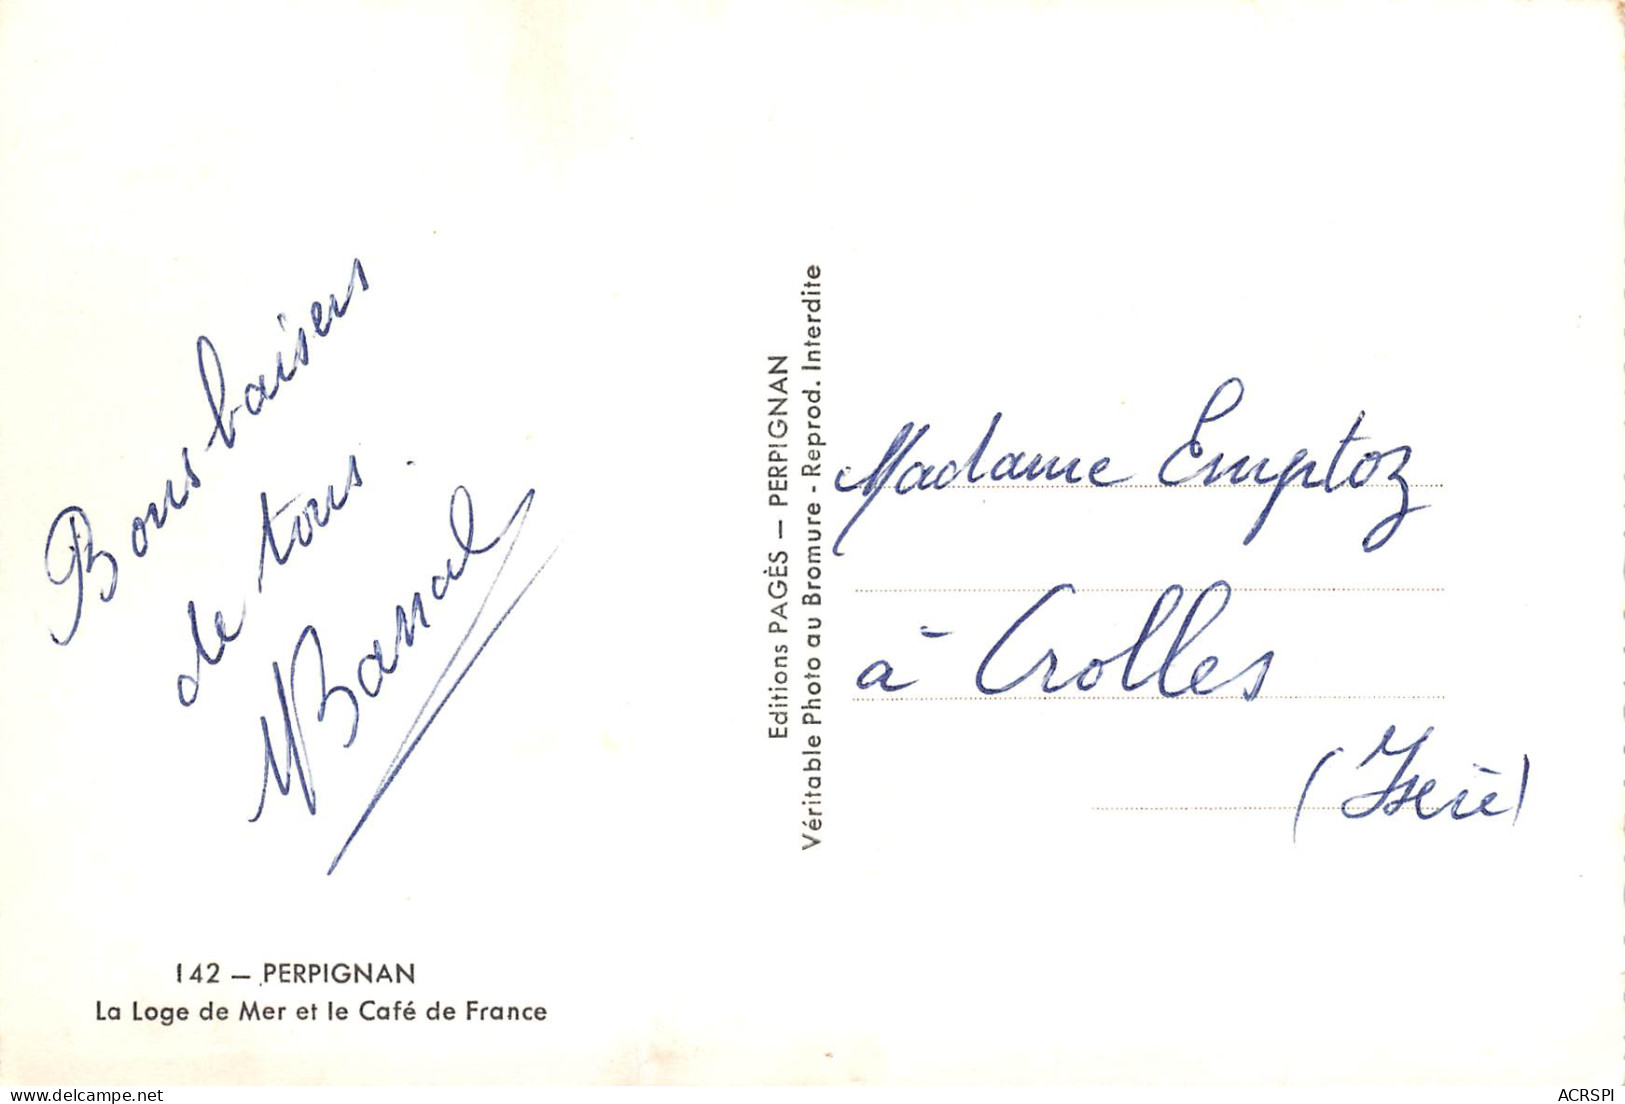 Bons baisers
de tous.
MBarral
142 — PERPIGNAN
La Loge de Mer et le Café de France
Editions PAGÈS — PERPIGNAN
Véritable Photo au Bromure - Reprod. Interdite
Madame Emptoz
à Crolles
(Isère)
ACRSPI